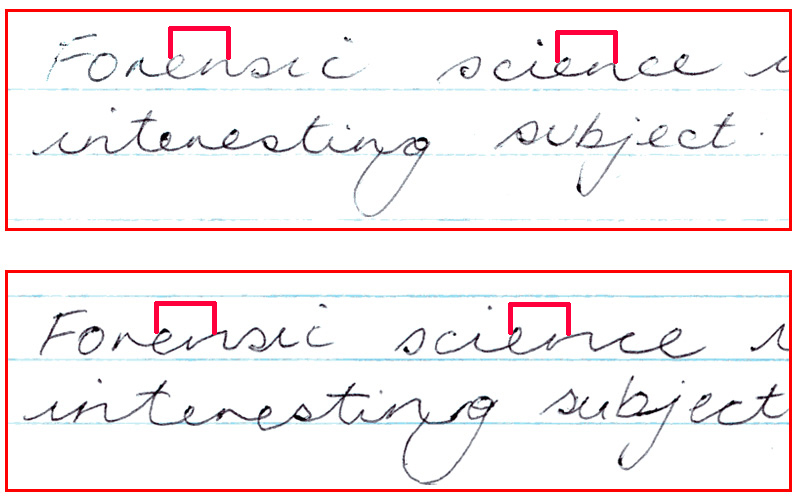 Forensic science i
interesting subject.
Forensic science i
interesting subject